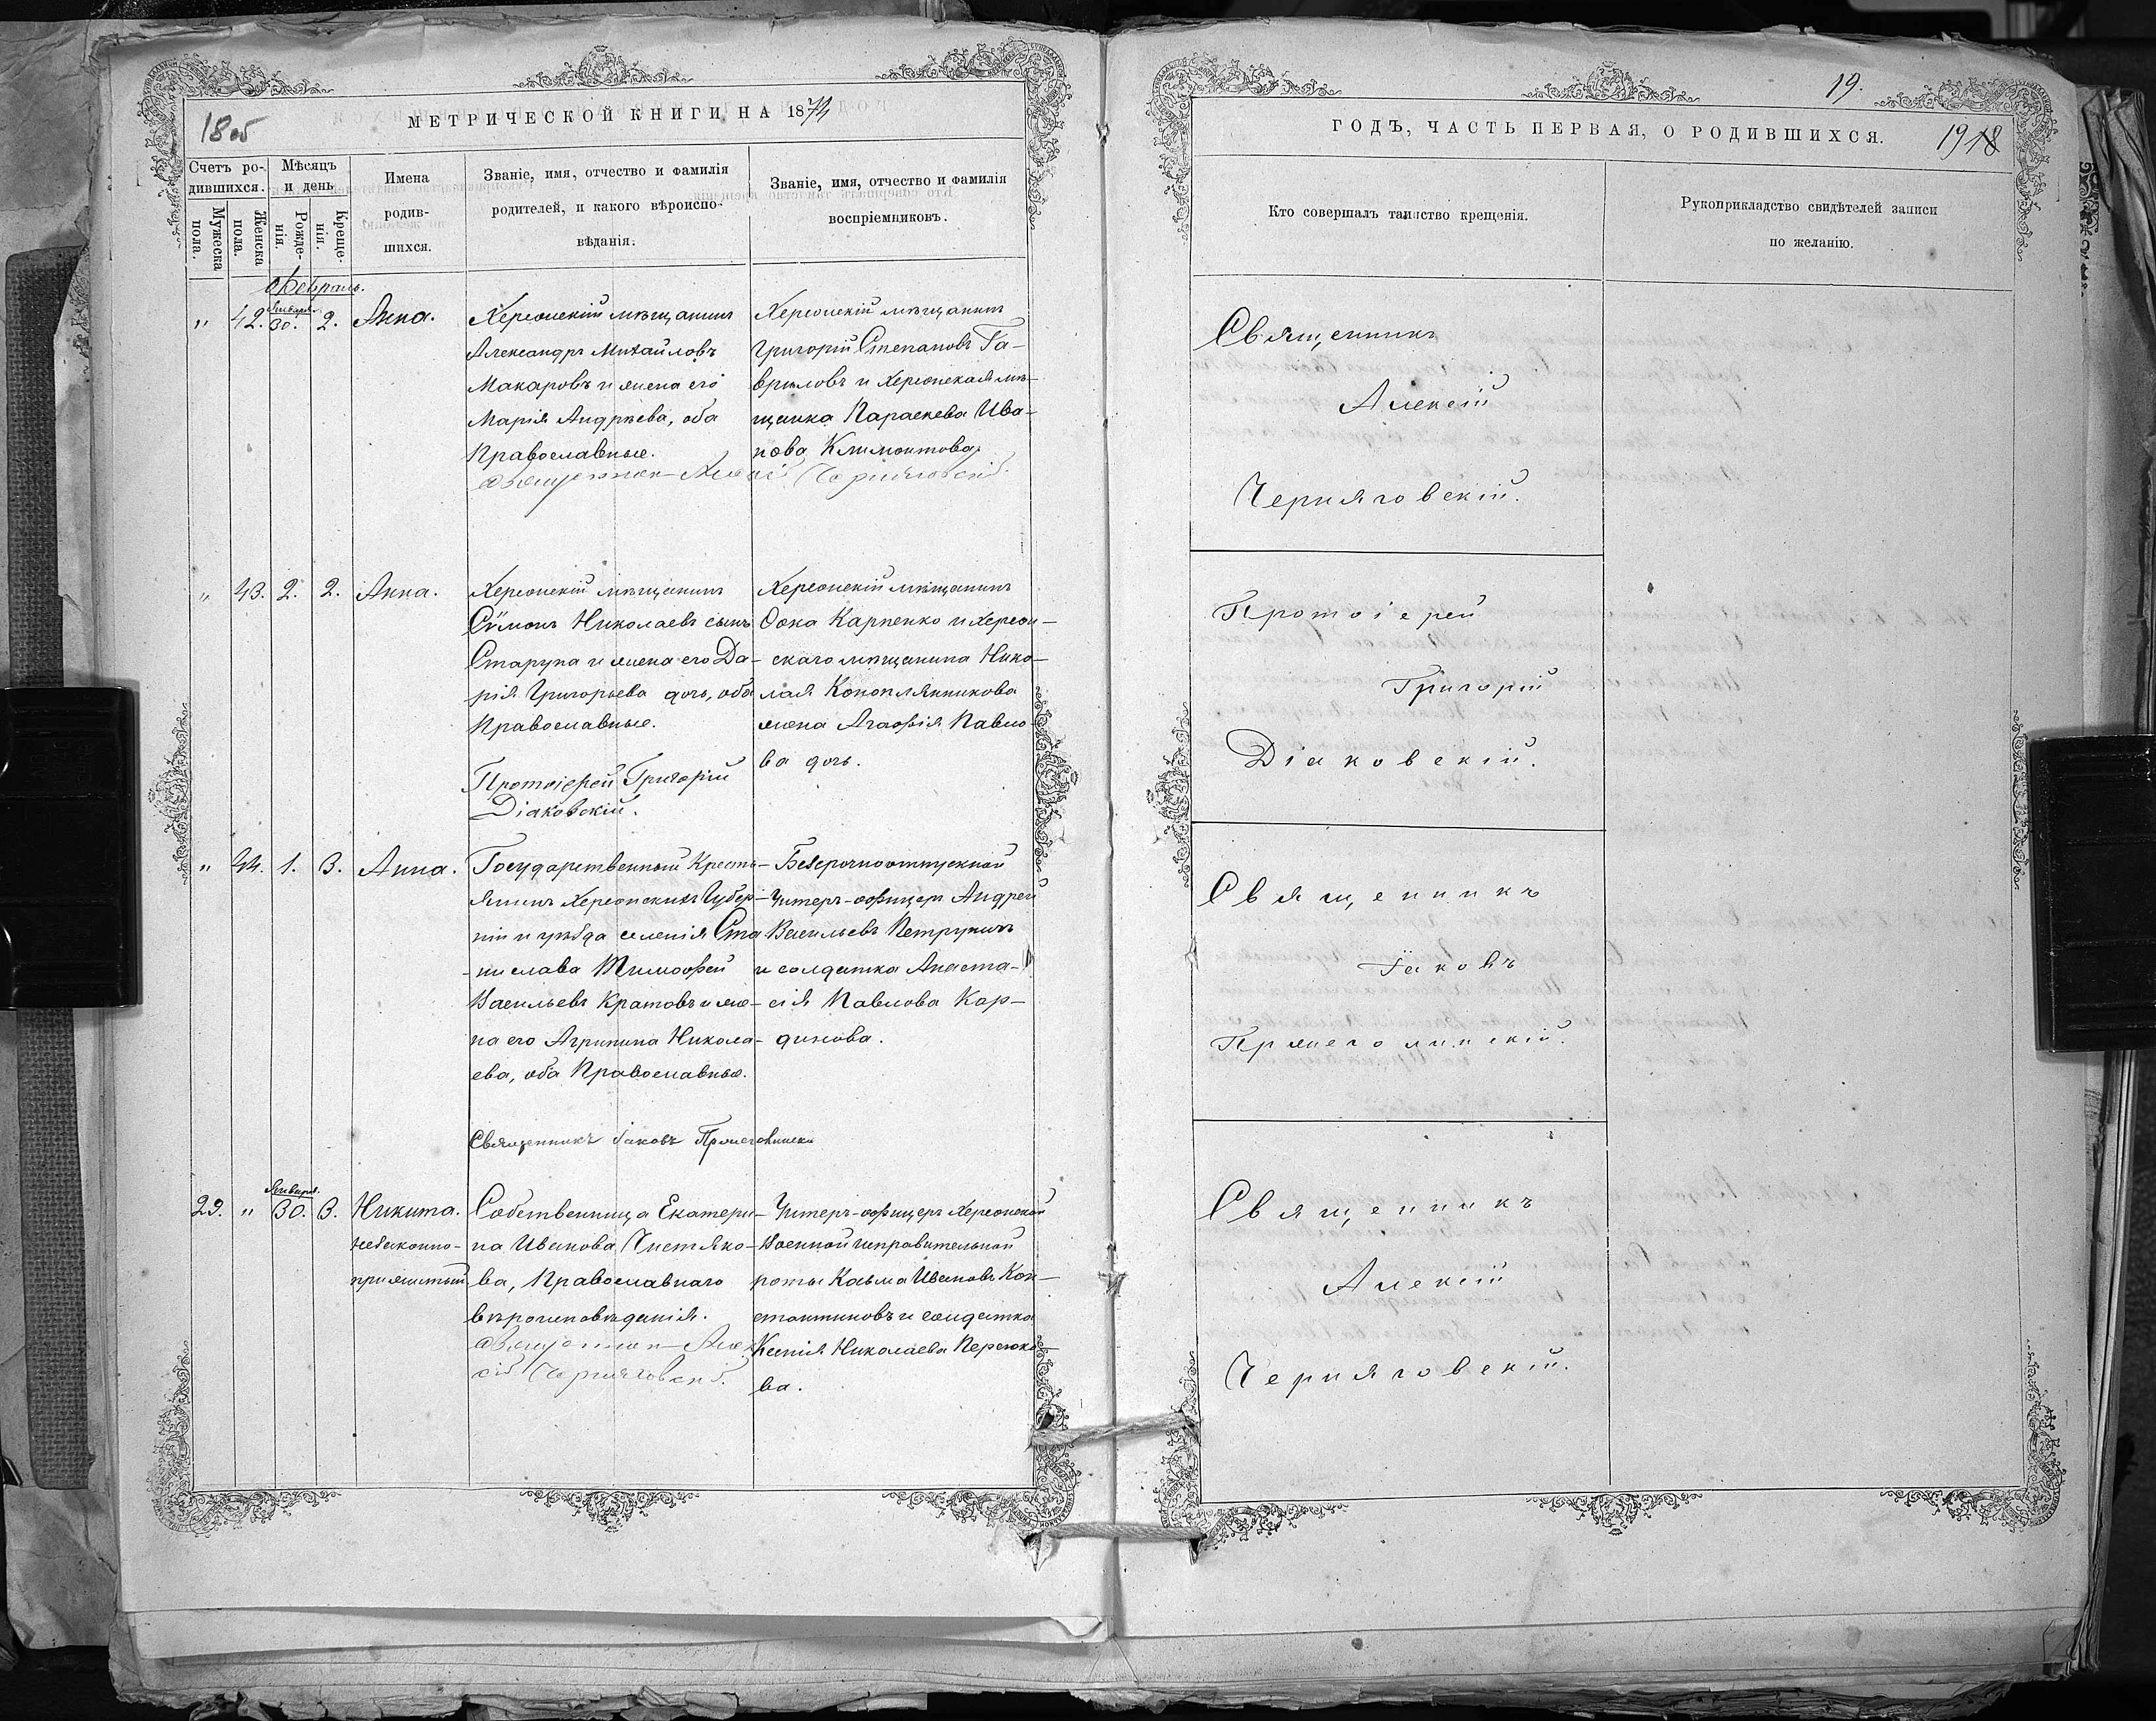 18 об
МЕТРИЧЕСКОЙ КНИГИ НА 1874
Счетъ ро-
дившихся.
Мужеска пола.
Женска пола.
Мѣсяцъ
и день
Рожде-
нія.
Креще-
нія.
Имена
родив-
шихся.
Званіе, имя, отчество и фамилія
родителей, и какого вѣроиспо-
вѣданія.
Званіе, имя, отчество и фамилія
воспріемниковъ.
Февраль.
„ 42. Января 30. 2. Анна.
Херсонскій мѣщанинъ
Александръ Михайловъ
Макаровъ и жена его
Марія Андрѣева, оба
Православные.
Священник Алексій Черняговскій
Херсонскій мѣщанинъ
Григорій Степановъ Га-
вриловъ и Херсонская мѣ-
щанка Параскева Ива-
нова Климонтова.
„ 43. 2. 2. Анна.
Херсонскій мѣщанинъ
Сѵмонъ Николаевъ сынъ
Старупа и жена его Да-
рія Григорьева дочь, оба
Православные.
Протоіерей Григорій
Діаковскій.
Херсонскій мѣщанинъ
Ѳока Карпенко и Херсон-
скаго мѣщанина Нико-
лая Конопляникова
жена Агафія Павло-
ва дочь.
„ 44. 1. 3. Анна.
Государственный Кресть-
янинъ Херсонскихъ Губер-
ніи и уѣзда селенія Ста-
нислава Тимофей
Васильевъ Кратовъ и же-
на его Агрипина Никола-
ева, оба Православные.
Священникъ Іаковъ
Безсрочноотпускной
Унтеръ-офицеръ Андрей
Васильевъ Петрунинъ
и солдатка Анаста-
сія Павлова Кар-
динова.
29. „ Января. 30. 3. Никита.
незаконно-
прижитый
Собственница Екатери-
на Иванова Чистяко-
ва, Православнаго
вѣроисповѣданія.
Священник Алек-
сій Черняговскій.
Унтеръ-офицеръ Херсонской
Военной исправительной
роты Козьма Ивановъ Кон-
стантиновъ и солдатка
Ксенія Николаева
ва.
19.
ГОДЪ, ЧАСТЬ ПЕРВАЯ, О РОДИВШИХСЯ.
19 18
Кто совершалъ таинство крещенія.
Рукоприкладство свидѣтелей записи
по желанію.
Священникъ
Алексій
Черняговскій.
Протоіерей
Григорій
Діаковскій.
Священникъ
Іаковъ
Священникъ
Алексій
Черняговскій.